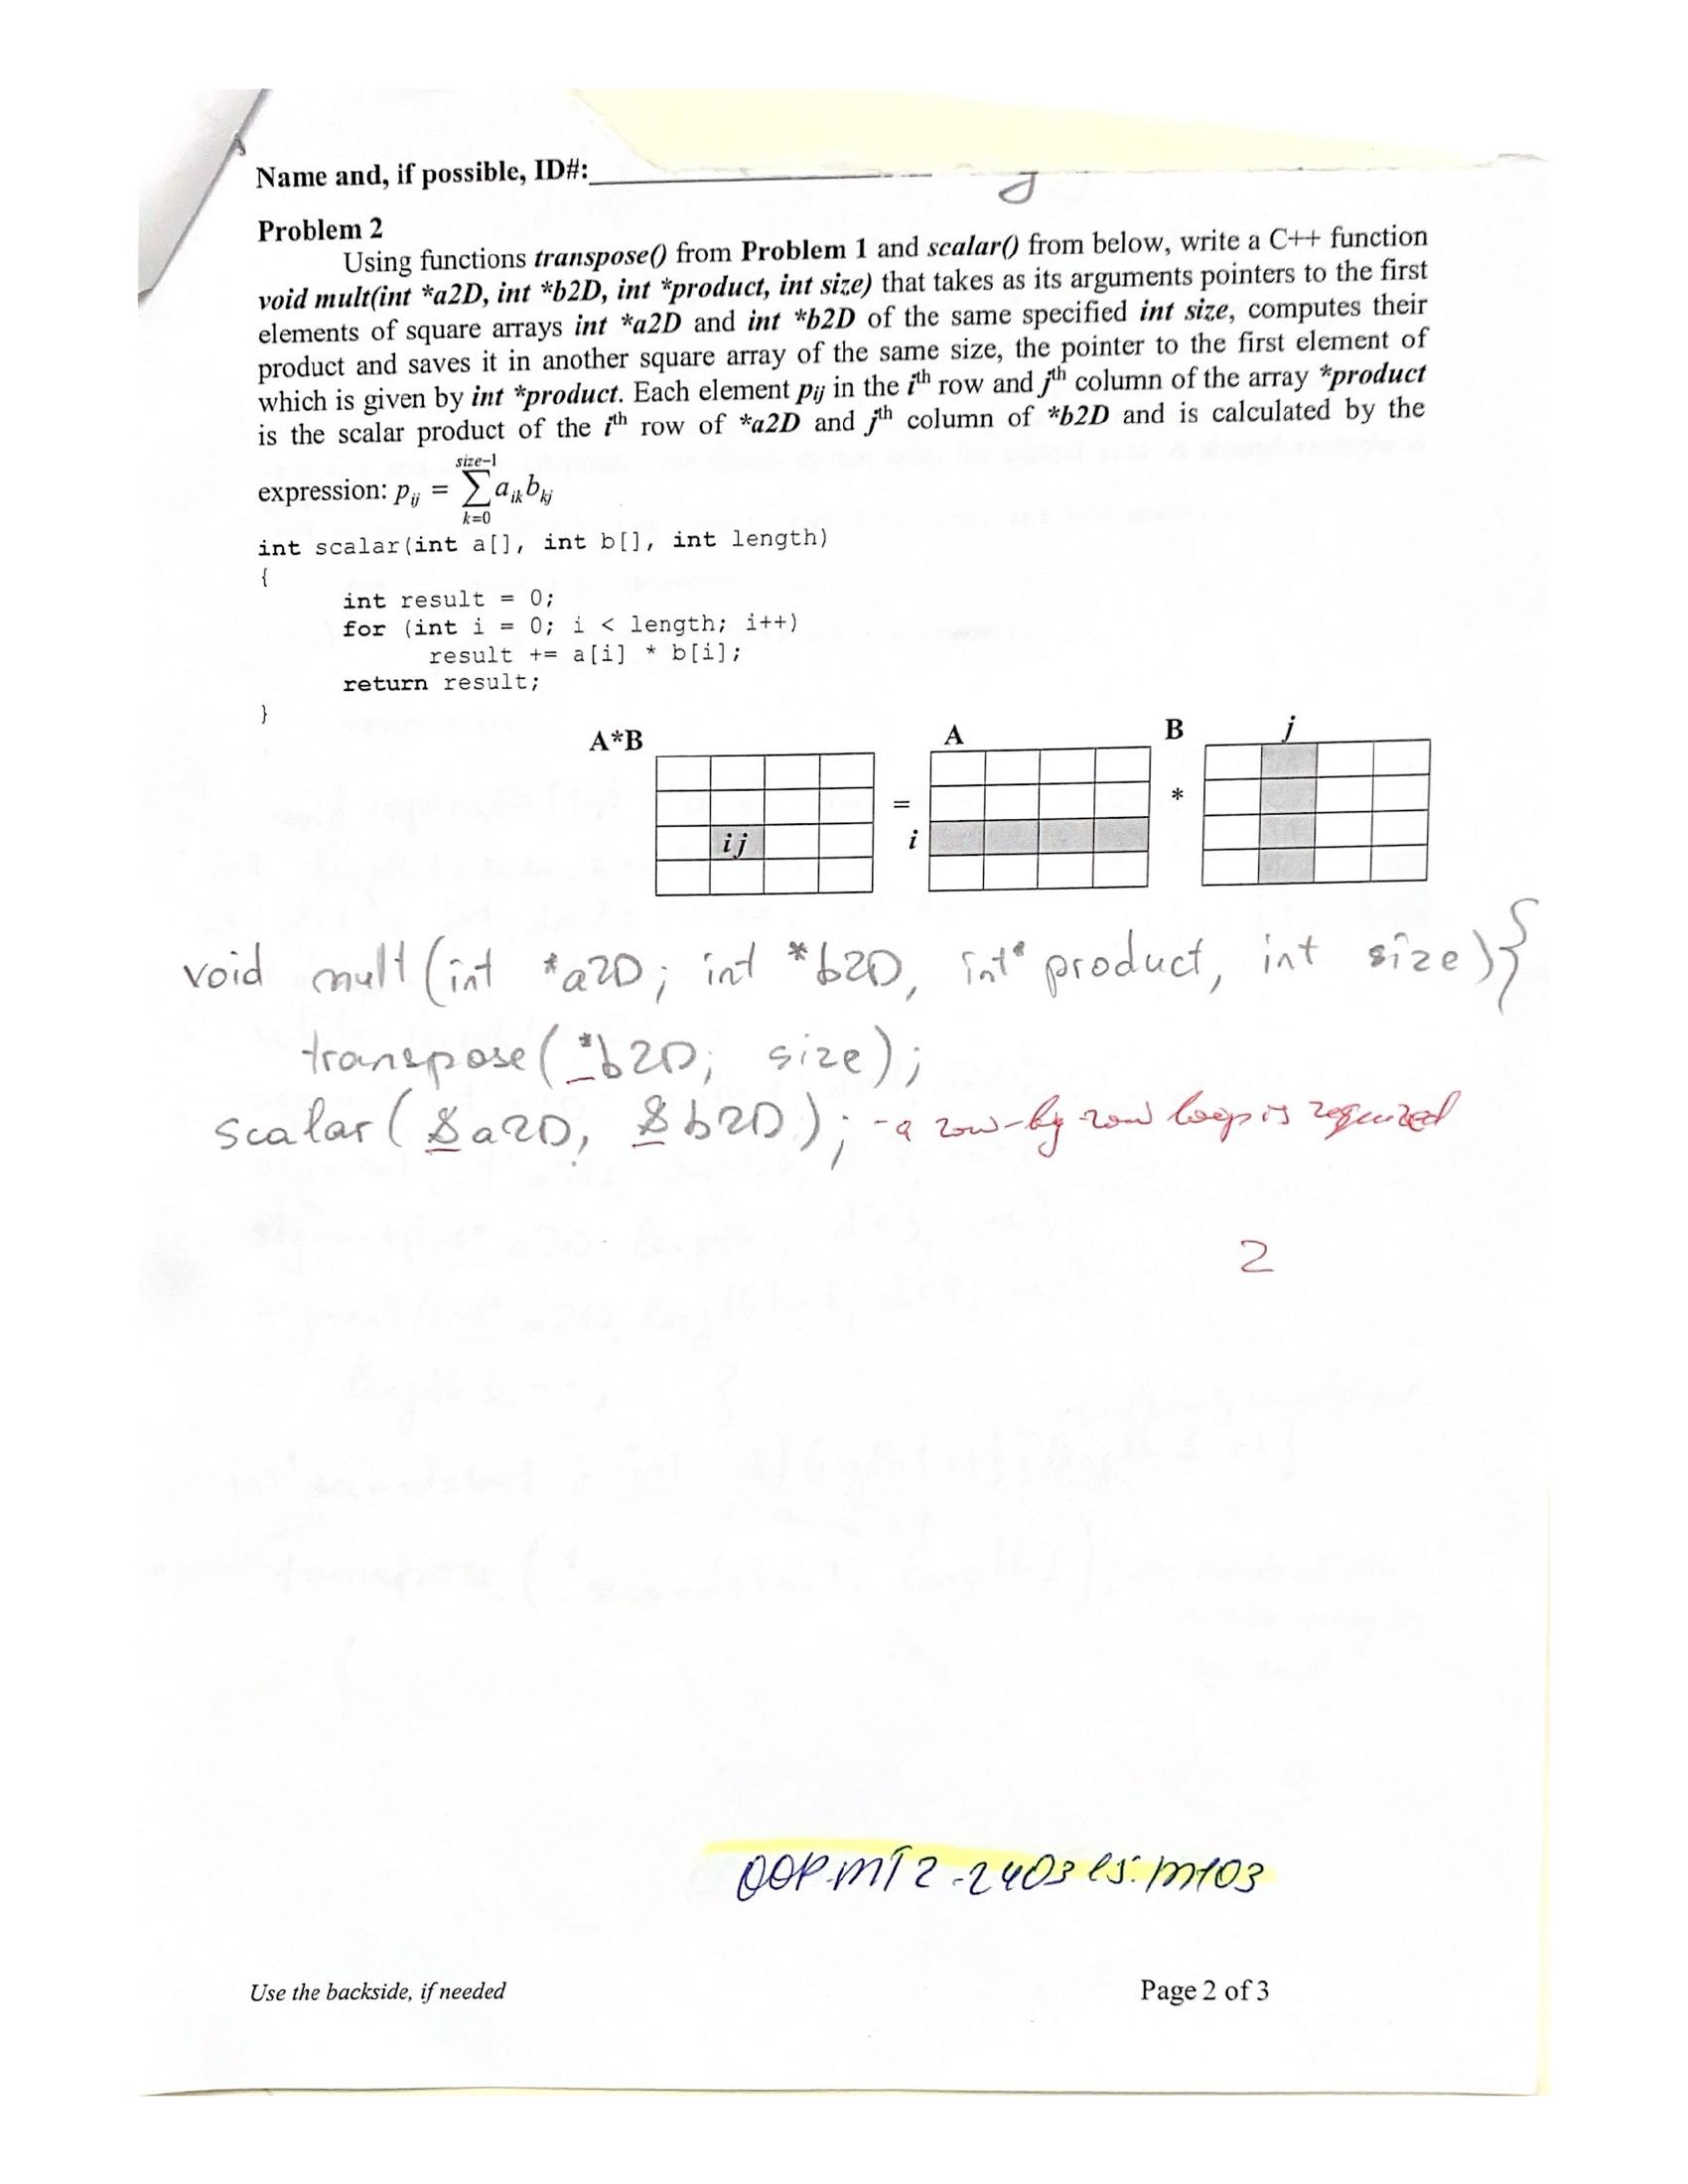 Name and, if possible, ID#:
Problem 2
Using functions transpose() from Problem 1 and scalar() from below, write a C++ function
void mult(int *a2D, int *b2D, int *product, int size) that takes as its arguments pointers to the first
elements of square arrays int *a2D and int *b2D of the same specified int size, computes their
product and saves it in another square array of the same size, the pointer to the first element of
which is given by int *product. Each element pij in the ith row and jth column of the array *product
is the scalar product of the ith row of *a2D and jth column of *b2D and is calculated by the
expression: pij = size-1 ∑ k=0 aik bkj
int scalar(int a[], int b[], int length)
{
int result = 0;
for (int i = 0; i < length; i++)
result += a[i] * b[i];
return result;
}
A*B A B j
= *
ij i
void mult(int *a2D; int *b2D, int* product, int size){
transpose(*b2D; size);
scalar(&a2D, &b2D); - a row-by-row loop is required
2
OOP.MT2-2403
Use the backside, if needed Page 2 of 3